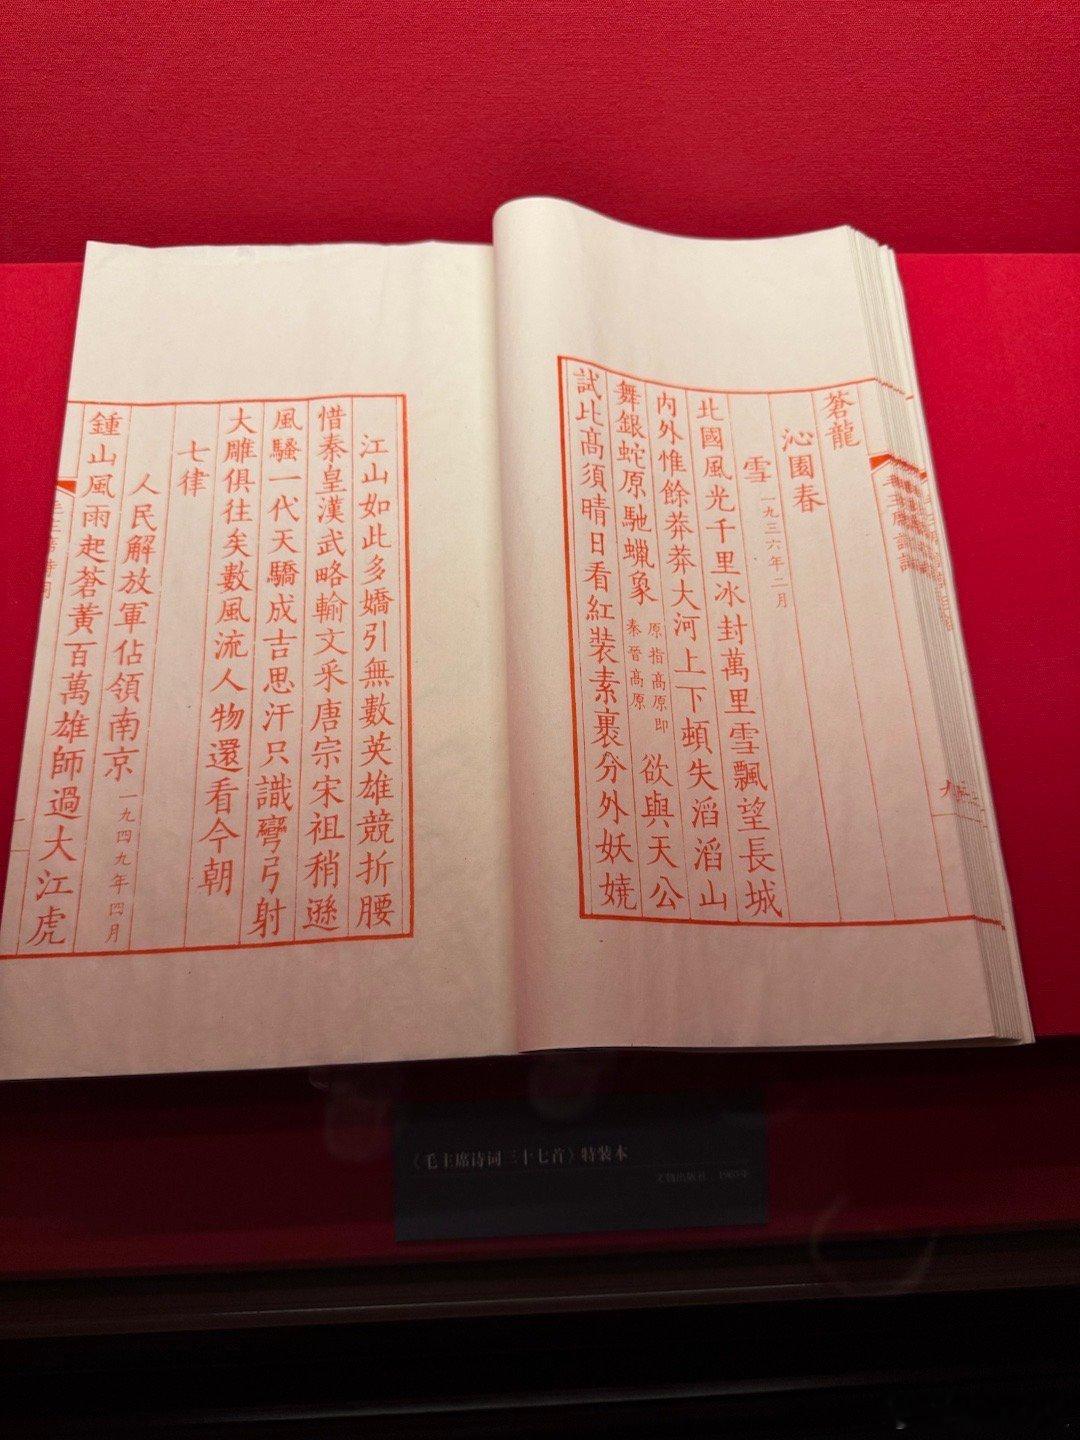 蒼龍
沁園春
雪 一九三六年二月
北國風光千里冰封萬里雪飄望長城
內外惟餘莽莽大河上下頓失滔滔山
舞銀蛇原馳蠟象 原指高原即秦晉高原 欲與天公
試比高須晴日看紅裝素裹分外妖嬈
江山如此多嬌引無數英雄競折腰
惜秦皇漢武略輸文采唐宗宋祖稍遜
風騷一代天驕成吉思汗只識彎弓射
大雕俱往矣數風流人物還看今朝
七律
人民解放軍佔領南京 一九四九年四月
鍾山風雨起蒼黃百萬雄師過大江虎
《毛主席诗词三十七首》特装本
文物出版社